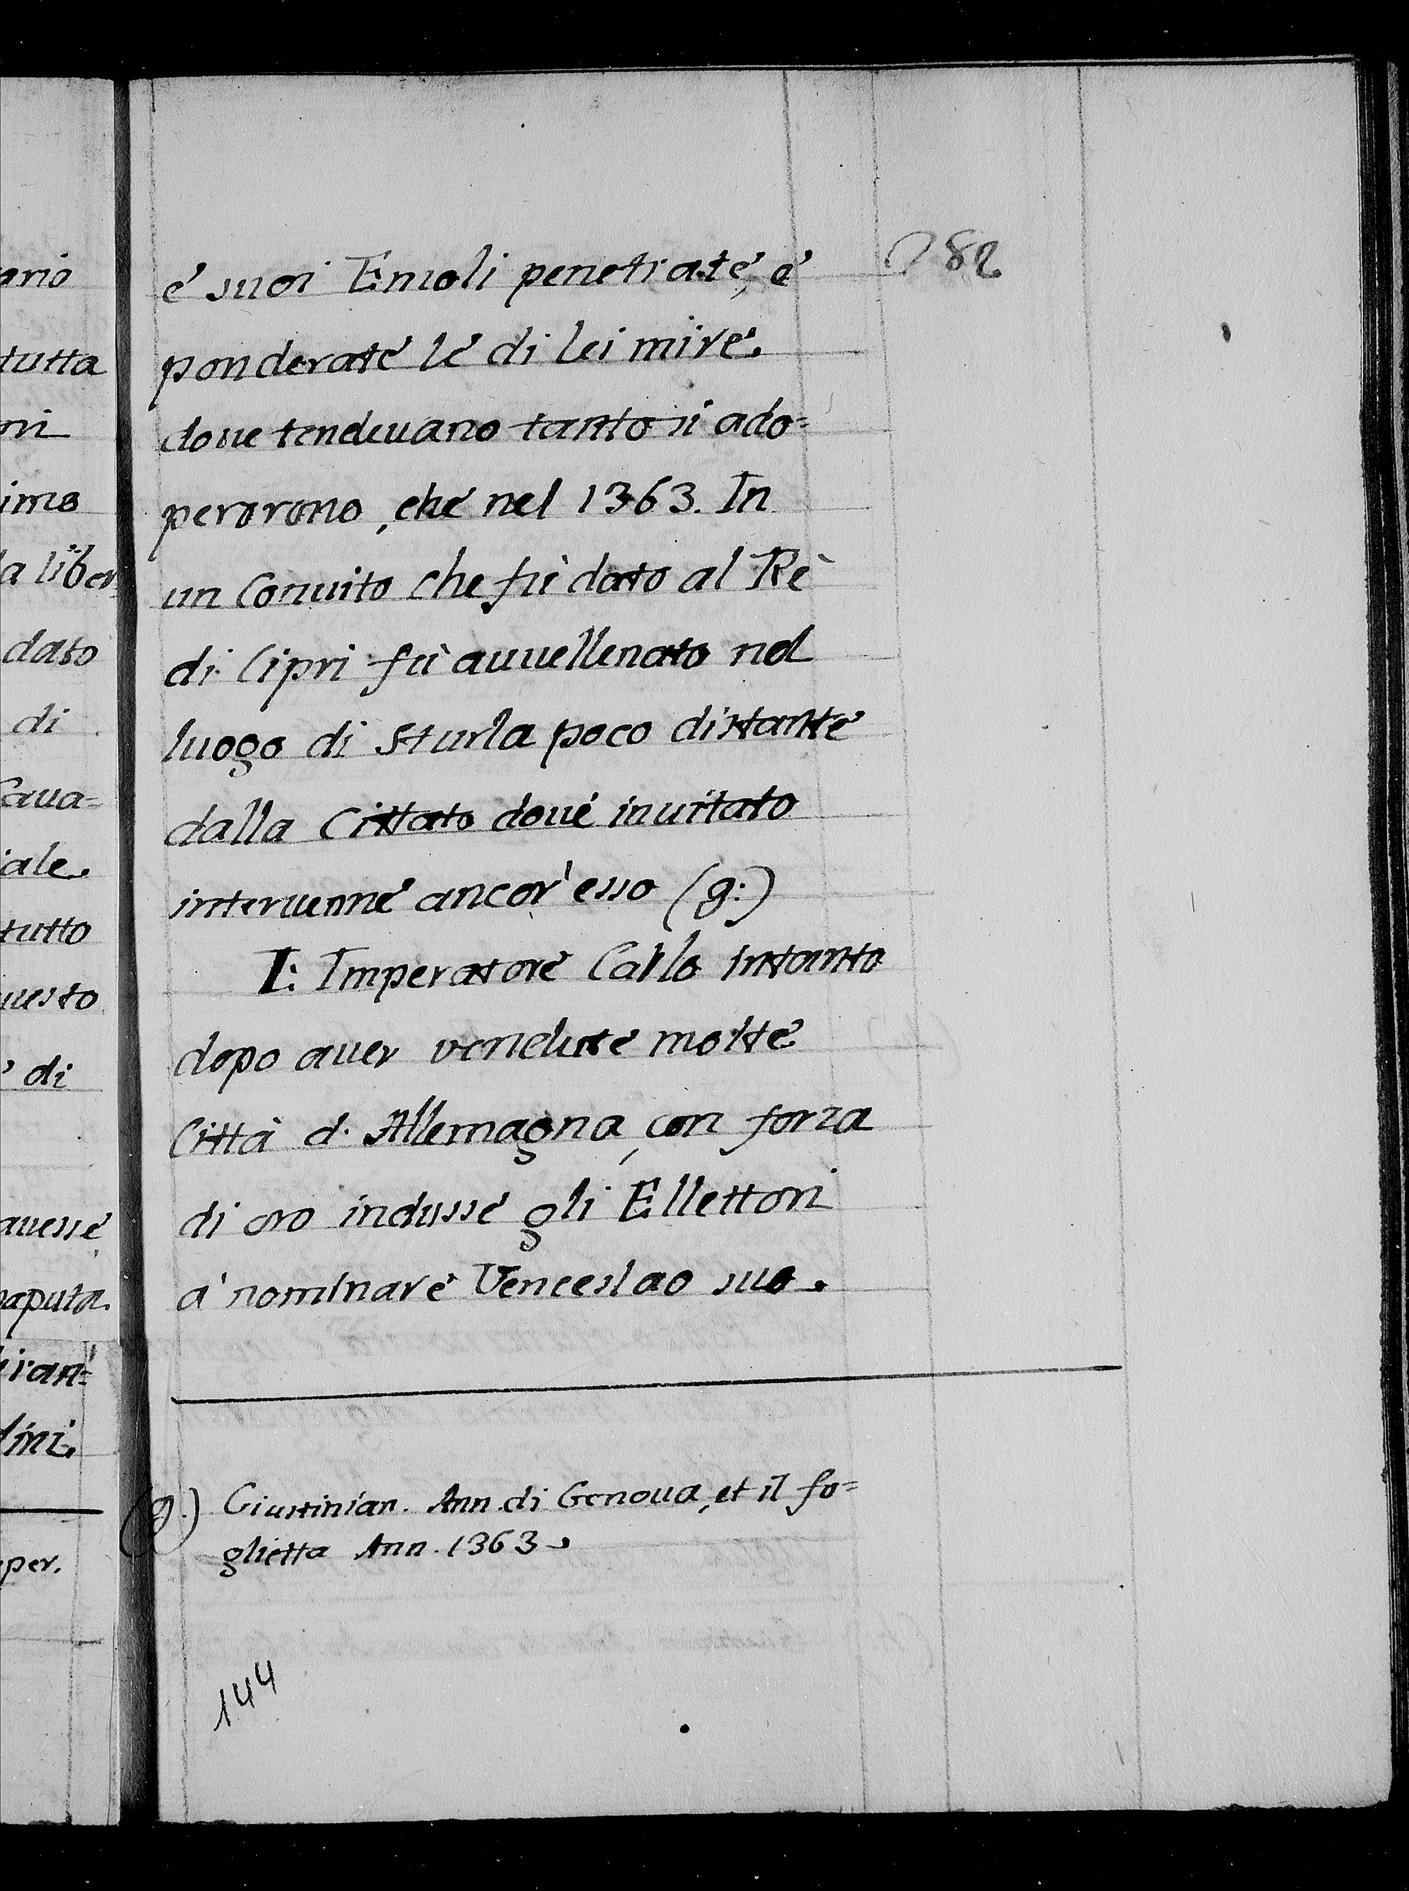 282
é suoi Emoli penetrate, é
ponderaté lé di lei miré.
doue tendeuano tanto si ado=
perorono, ché nel 1363. In
un Conuito che fù dato al Rè
di Cipri fù auuellenato nel
luogo di Sturla poco distanté
dalla Cittato doué inuitato
interuenné ancor'esso (g:)
L: Imperatoré Carlo intanto
dopo auer venduté molté
Città d. Allemagna, con forza
di oro indussé gli Ellettori
à nominaré Venceslao suo.
(g.) Giustinian. Ann. di Genoua, et il fo=
glietta Ann. 1363.
144
ario
tutta
oni
imo
la liber
dato
di
Caua=
iale.
tutto
uesto
di
auessé
aputa.
ian=
dini.
per.